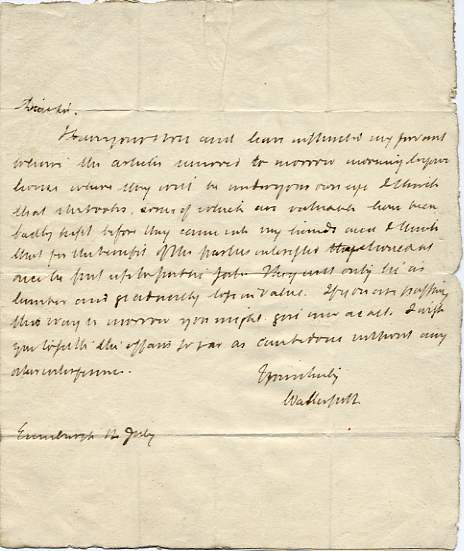 Dear Sir.
I have your and have instructed my servant
the articles removed to morrow morning to your
house where they will be under your own eye I think
that the books, some of which are valuable have been
badly kept before they came into my hands and I think
that for the benefit of the parties interested they should at
once be put up to public sale They will only lie as
lumber and gradually lose in value. If you are passing
this way to morrow you might give me a call. I wish
you to settle this affair so far as can be done without any
other interference.
Yours truly
Walter Scott
Edinburgh 12 July